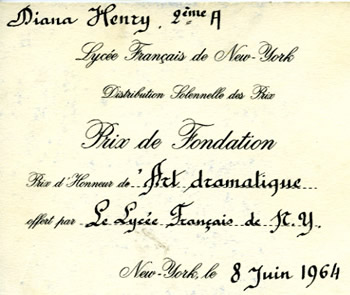 Diana Henry. 2ème A
Lycée Français de New-York
Distribution Solennelle des Prix
Prix de Fondation
Prix d'Honneur de 'Art dramatique
offert par Le Lycée Français de N.Y.
New-York, le 8 Juin 1964